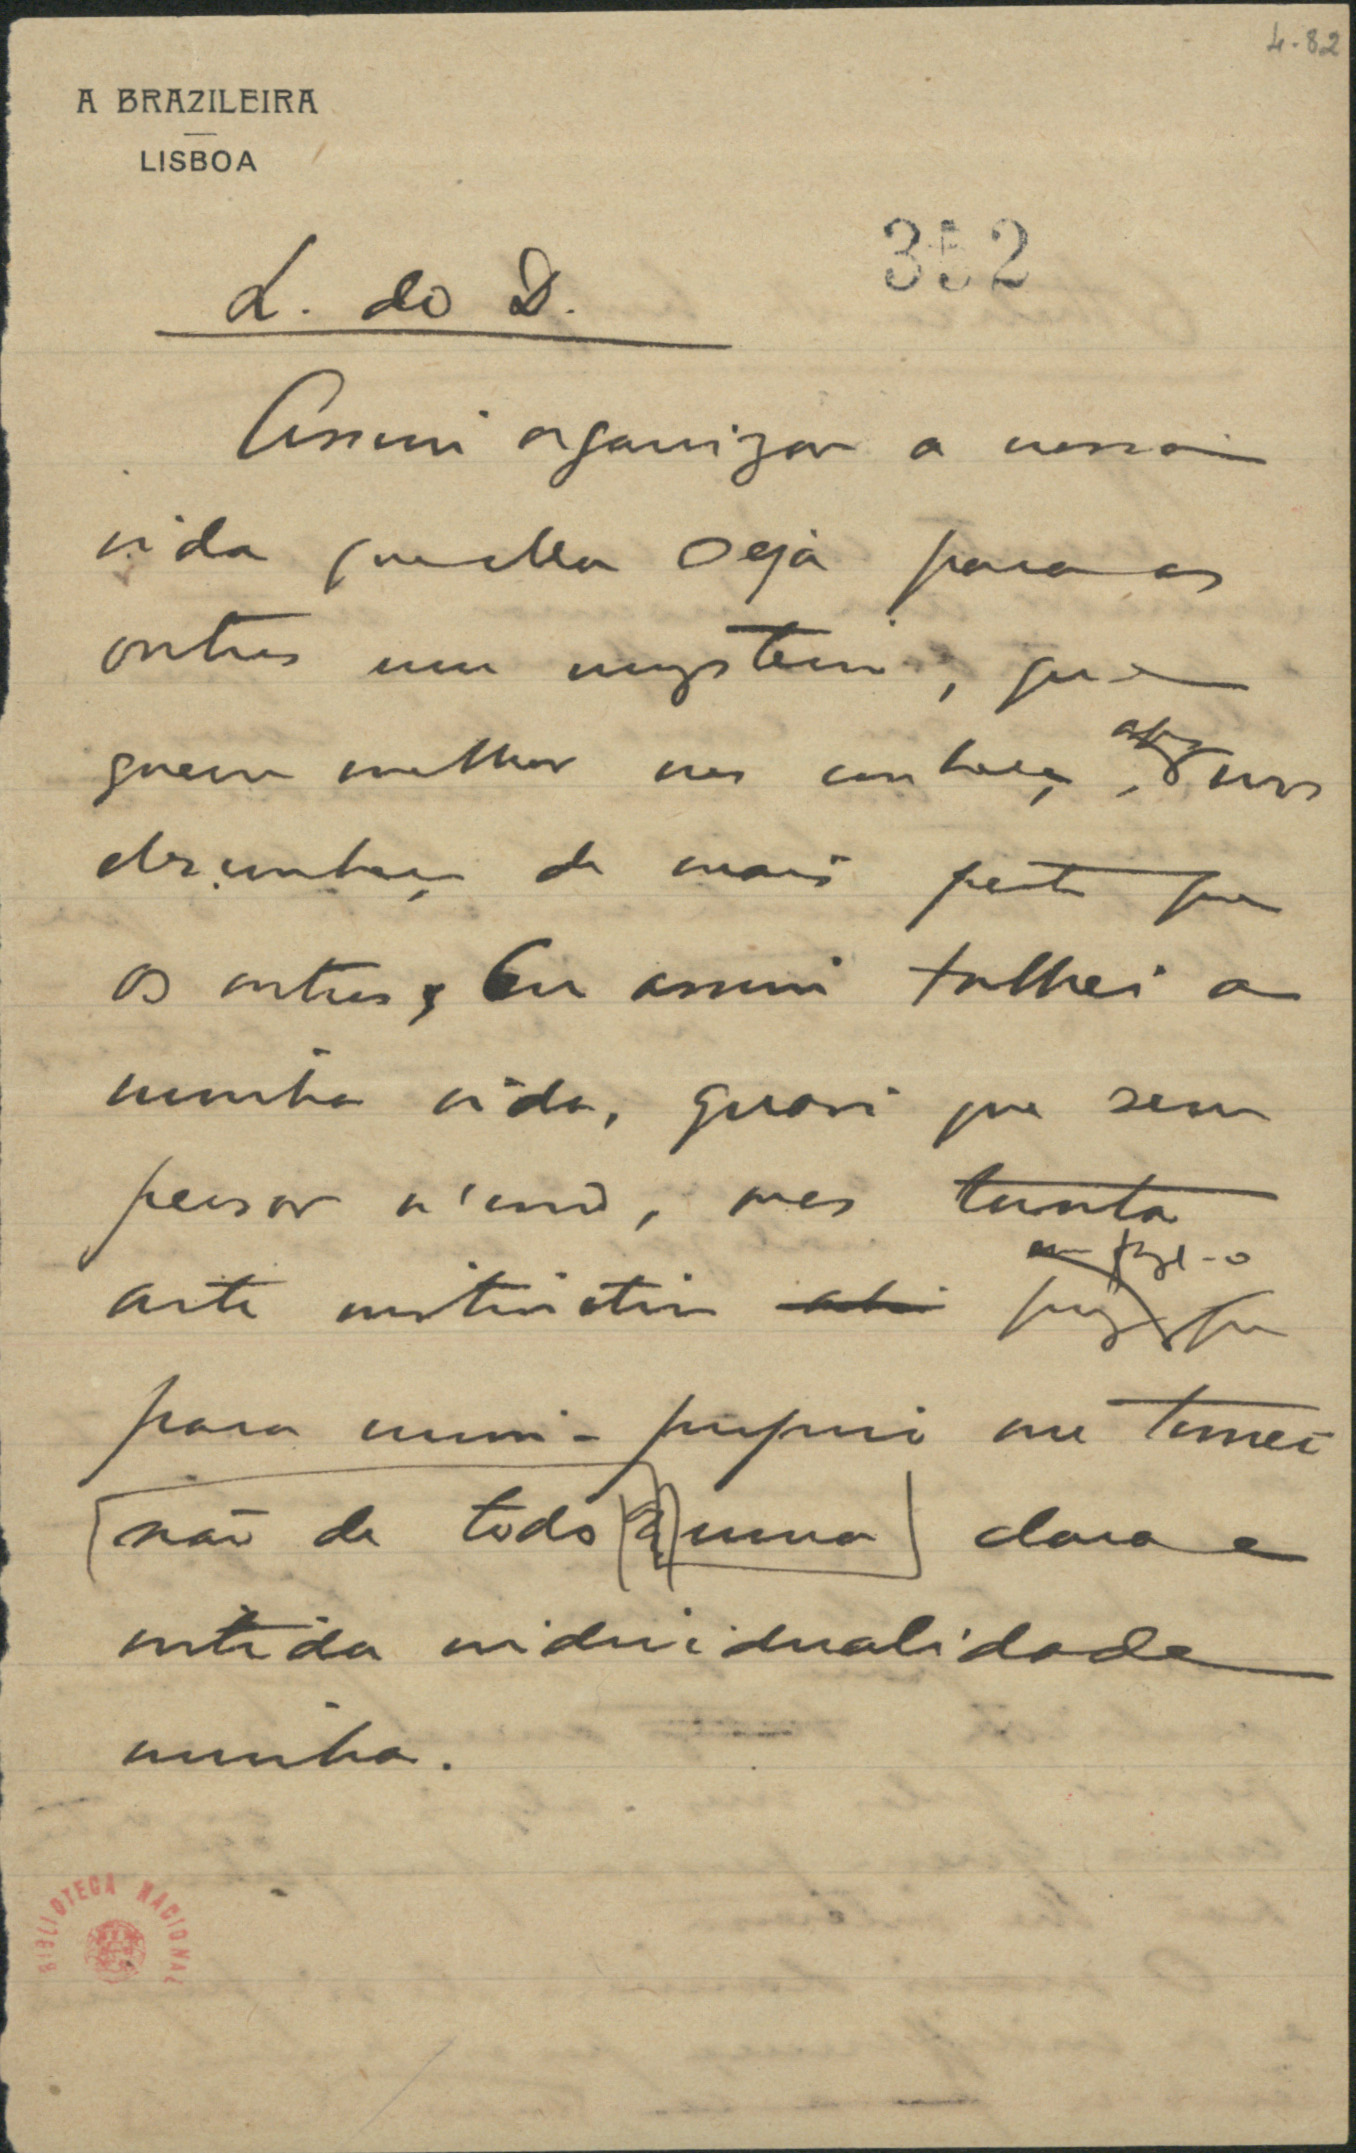 4-82
A BRAZILEIRA
LISBOA
352
L. do D.
Assim organizar a nossa
vida que ella seja para os
outros um mysterio, que
quem melhor nos conheça,
apenas nos
desconheça de mais perto que
os outros. Eu assim talhei a
minha vida, quasi que sem
pensar n'isso, mas tanta
arte instinctiva puz
em fazel-o
que
para mim-proprio me tornei
não de todo uma clara e
nitida individualidade
minha.
BIBLIOTECA NACIONAL